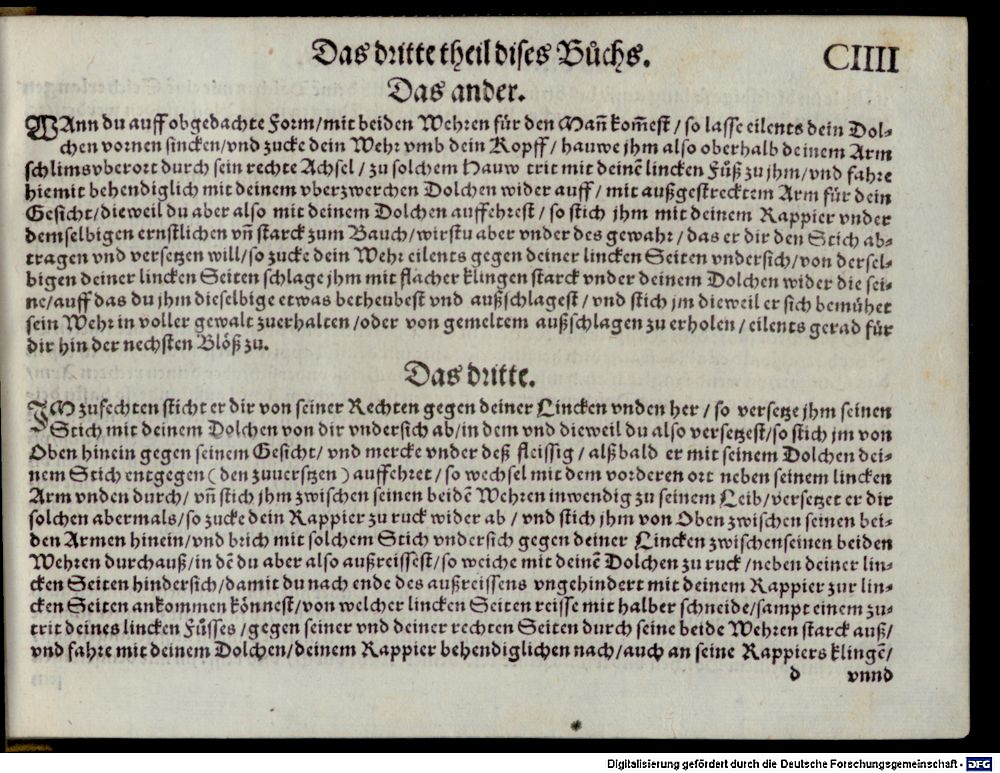 Das dritte theil dises Bůchs.
CIIII
Das ander.
WAnn du auff obgedachte Form/mit beiden Wehren für den Mañ kom̃est/so lasse eilents dein Dol-
chen vornen sincken/vnd zucke dein Wehr vmb dein Kopff/hauwe jhm also oberhalb deinem Arm
schlims vberort durch sein rechte Achsel/zu solchem Hauw trit mit deinẽ lincken Fůß zu jhm/vnd fahre
hiemit behendiglich mit deinem vberzwerchen Dolchen wider auff/mit außgestrecktem Arm für dein
Gesicht/dieweil du aber also mit deinem Dolchen auffehrest/so stich jhm mit deinem Rappier vnder
demselbigen ernstlichen vñ starck zum Bauch/wirstu aber vnder des gewahr/das er dir den Stich ab-
tragen vnd versetzen will/so zucke dein Wehr eilents gegen deiner lincken Seiten vndersich/von dersel-
bigen deiner lincken Seiten schlage jhm mit flacher klingen starck vnder deinem Dolchen wider die sei-
ne/auff das du jhm dieselbige etwas betheubest vnd außschlagest/vnd stich jm dieweil er sich bemühet
sein Wehr in voller gewalt zuerhalten/oder von gemeltem außschlagen zu erholen/eilents gerad für
dir hin der nechsten Blöß zu.
Das dritte.
IM zufechten sticht er dir von seiner Rechten gegen deiner Lincken vnden her/so versetze jhm seinen
Stich mit deinem Dolchen von dir vndersich ab/in dem vnd dieweil du also versetzest/so stich jm von
Oben hinein gegen seinem Gesicht/vnd mercke vnder deß fleissig/alßbald er mit seinem Dolchen dei-
nem Stich entgegen (den zuuersetzen) auffehret/so wechsel mit dem vorderen ort neben seinem lincken
Arm vnden durch/vñ stich jhm zwischen seinen beidẽ Wehren inwendig zu seinem Leib/versetzet er dir
solchen abermals/so zucke dein Rappier zu ruck wider ab/vnd stich jhm von Oben zwischen seinen bei-
den Armen hinein/vnd brich mit solchem Stich vndersich gegen deiner Lincken zwischen seinen beiden
Wehren durchauß/in dẽ du aber also außreissest/so weiche mit deinẽ Dolchen zu ruck/neben deiner lin-
cken Seiten hindersich/damit du nach ende des außreissens vngehindert mit deinem Rappier zur lin-
cken Seiten ankommen könnest/von welcher lincken Seiten reisse mit halber schneide/sampt einem zu-
trit deines lincken Fůsses/gegen seiner vnd deiner rechten Seiten durch seine beide Wehren starck auß/
vnd fahre mit deinem Dolchen/deinem Rappier behendiglichen nach/auch an seine Rappiers klingẽ/
d vnnd
Digitalisierung gefördert durch die Deutsche Forschungsgemeinschaft - DFG